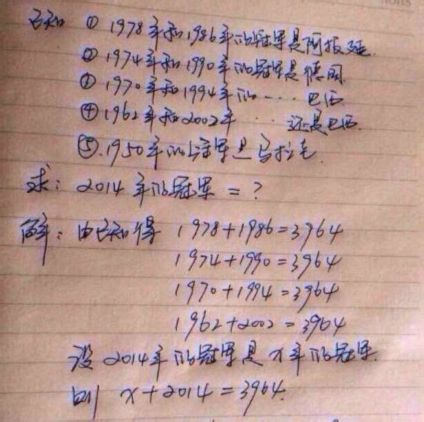 已知 ① 1978年和1986年的冠军是阿根廷
② 1974年和1990年的冠军是德国
③ 1970年和1994年的……巴西
④ 1962年和2002年…还是巴西
⑤. 1950年的冠军是乌拉圭
求: 2014年的冠军 = ?
解: 由已知得 1978+1986=3964
1974+1990=3964
1970+1994=3964
1962+2002=3964
设2014年的冠军是x年的冠军.
则 x+2014=3964.